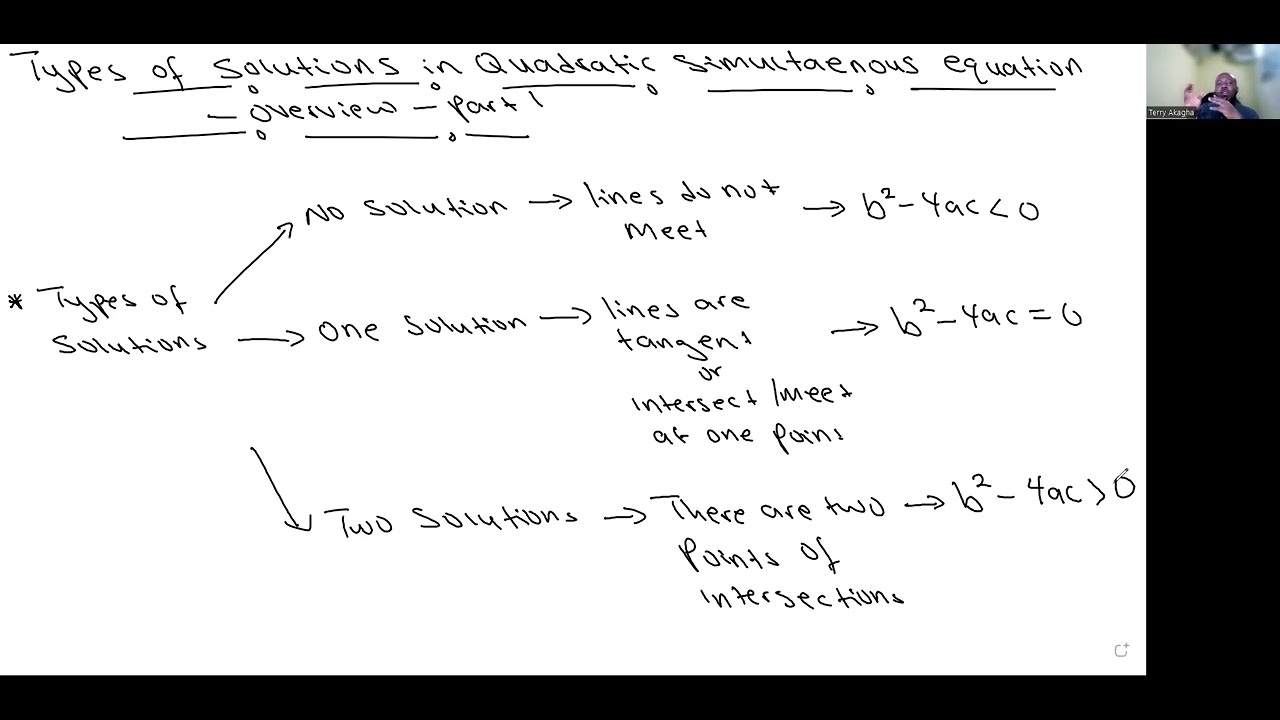 Types of Solutions in Quadratic Simultaenous equation
- overview - part 1
No Solution → lines do not meet → b² - 4ac < 0
* Types of Solutions
→ One Solution → lines are tangent or intersect / meet at one point → b² - 4ac = 0
Two Solutions → There are two points of intersections → b² - 4ac > 0
Terry Akagha